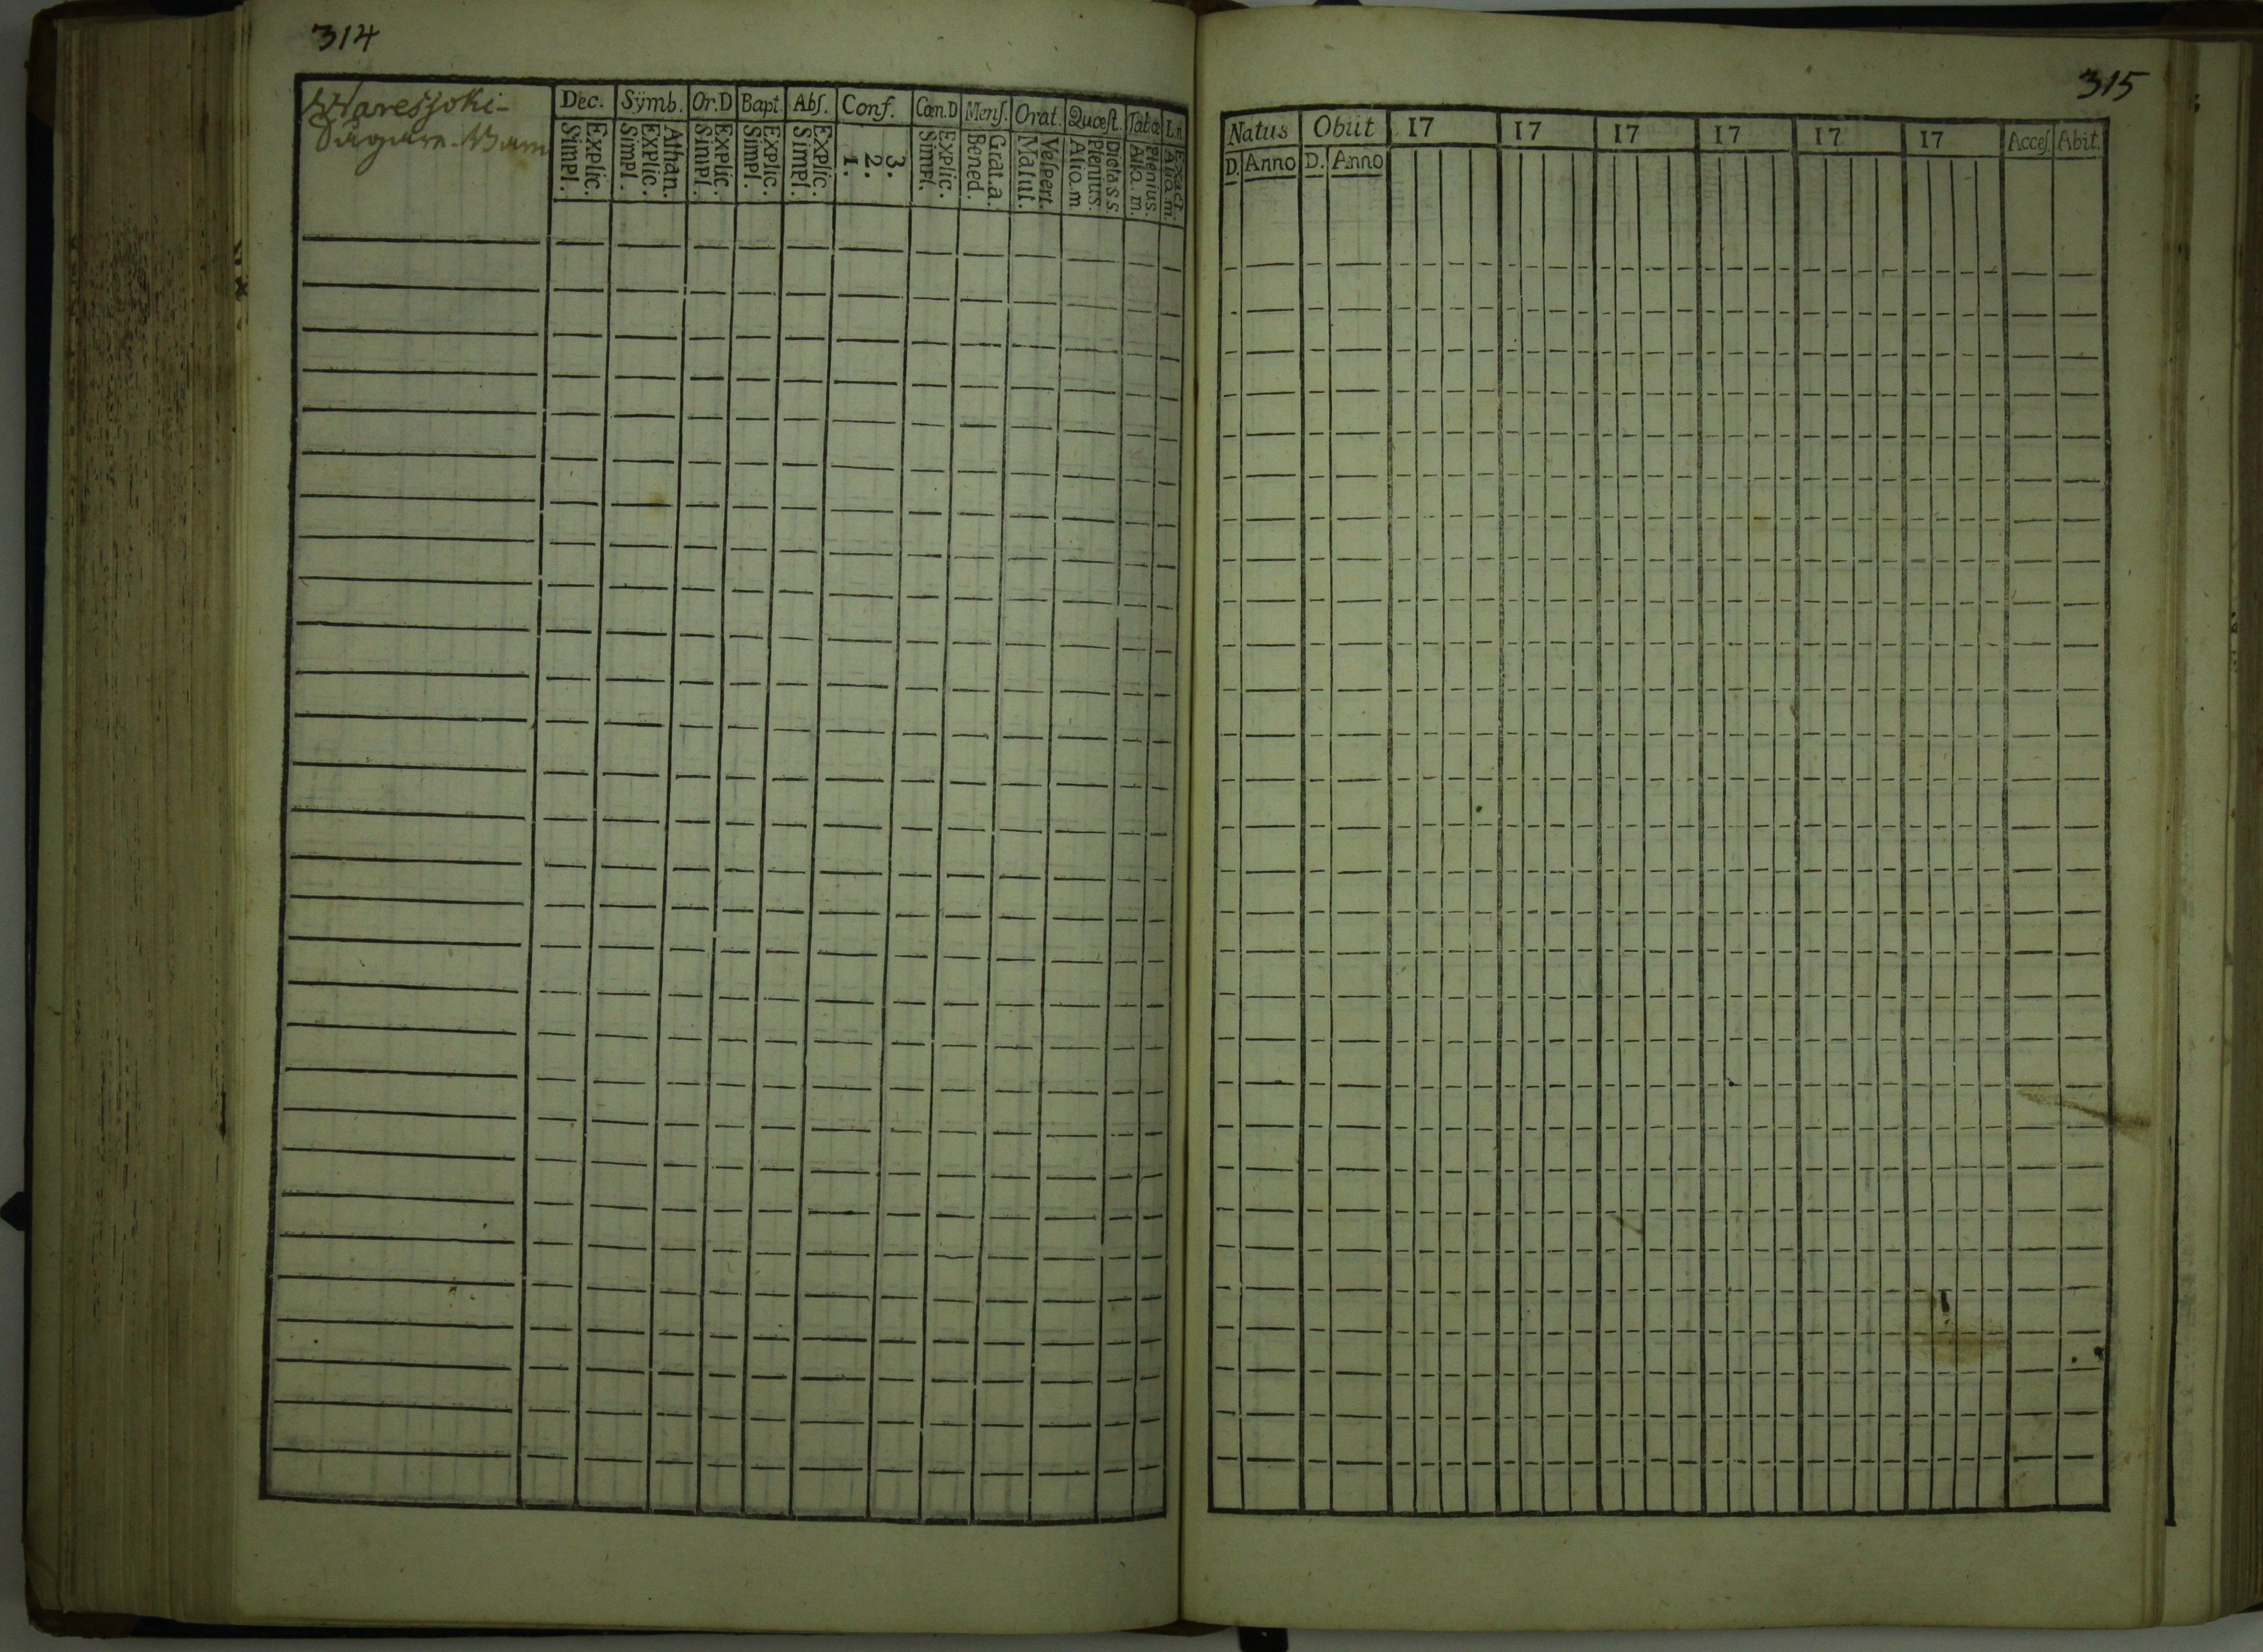 314
Waresjoki-
Dec. Sÿmb. Or.D Bapt. Abſ. Conf. Cœn.D Menſ. Orat. Quœſt. Tabœ L.n
Simpl. Explic. Simpl. Explic. Athan. Simpl. Explic. Simpl. Explic. Simpl. Explic. 1. 2. 3. Simpl. Explic. Bened. Grat.a. Matut. Veſpert. Alio.m Plenius. Dicta.s.s. Alio.m. Plenius. Alio.m. Exact.
315
Natus Obiit 17 17 17 17 17 17 Acceſ. Abit.
D. Anno D. Anno